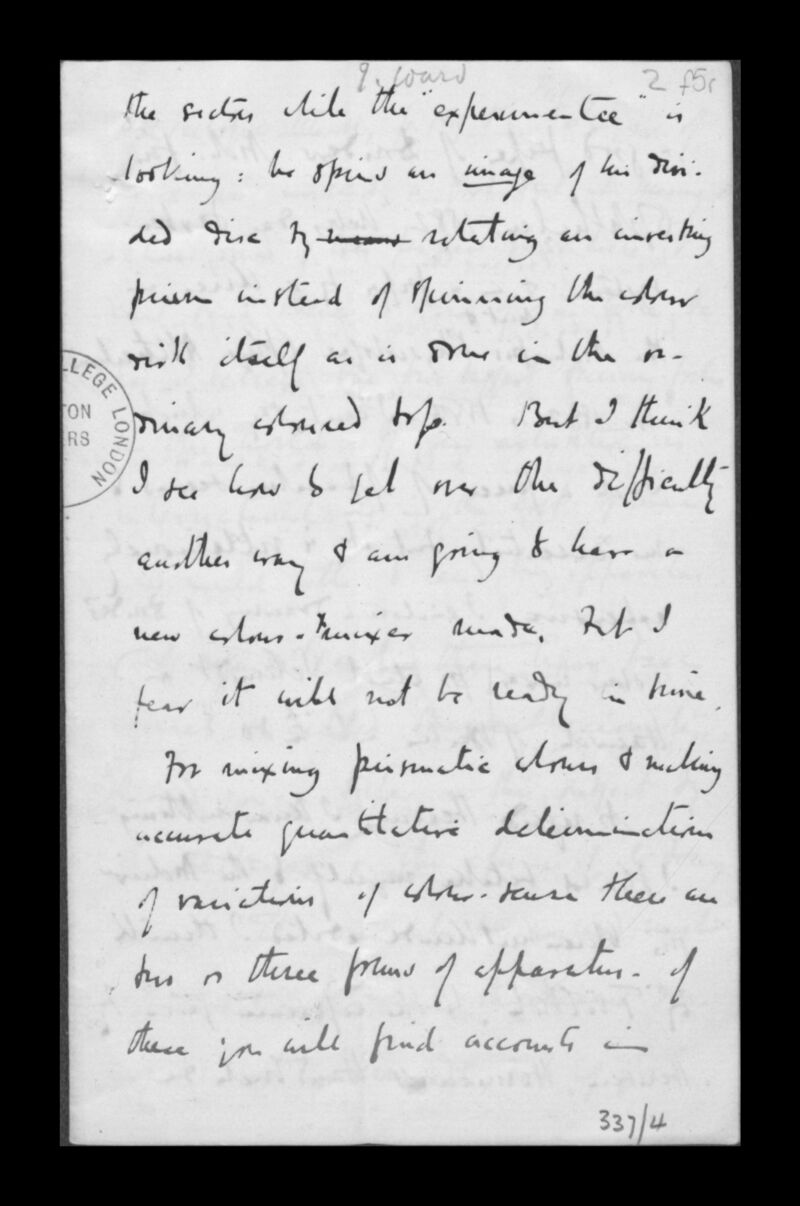 J. Ward
2 f5r
the sectors while the "experimentee" is
looking: he spins an image of his divi-
ded disc by means rotating an inverting
prism instead of spinning the colour
disk itself as is done in the or-
dinary coloured tops. But I think
I see how to get over the difficulty
another way & am going to have a
new colour-mixer made, but I
fear it will not be ready in time.
For mixing prismatic colours & making
accurate quantitative determinations
of variations of colour-sense there are
two or three forms of apparatus - of
these you will find accounts in
LLEGE LONDON
TON
ERS
337/4